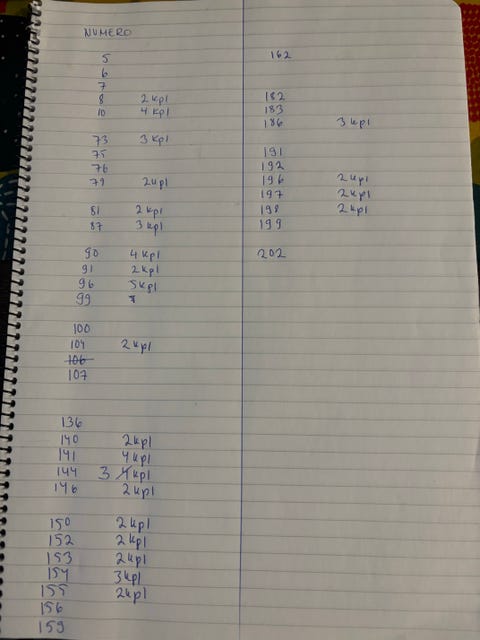 NUMERO
5
6
7
8 2 kpl
10 4 kpl
73 3 kpl
75
76
79 2 kpl
81 2 kpl
87 3 kpl
90 4 kpl
91 2 kpl
96 5 kpl
99
100
104 2 kpl
106
107
136
140 2 kpl
141 4 kpl
144 3 4 kpl
146 2 kpl
150 2 kpl
152 2 kpl
153 2 kpl
154 3 kpl
155 2 kpl
156
159
162
182
183
186 3 kpl
191
192
196 2 kpl
197 2 kpl
198 2 kpl
199
202